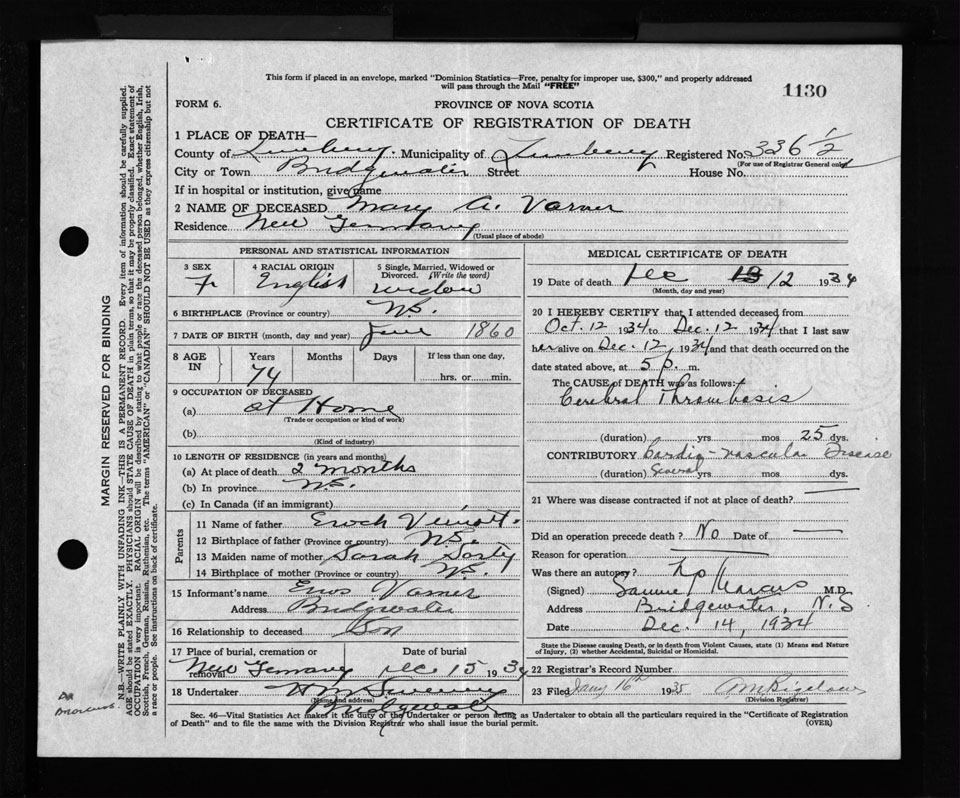 This form if placed in an envelope, marked "Dominion Statistics—Free, penalty for improper use, $300," and properly addressed
will pass through the Mail "FREE"
1130
FORM 6.
PROVINCE OF NOVA SCOTIA
CERTIFICATE OF REGISTRATION OF DEATH
1 PLACE OF DEATH—
County of Lunenburg. Municipality of Lunenburg Registered No. 336½
(For use of Registrar General only)
City or Town Bridgewater Street House No.
If in hospital or institution, give name
2 NAME OF DECEASED Mary A. Varner
Residence New Germany
(Usual place of abode)
PERSONAL AND STATISTICAL INFORMATION
3 SEX F
4 RACIAL ORIGIN English
5 Single, Married, Widowed or Divorced. (Write the word) widow
6 BIRTHPLACE (Province or country) N.S.
7 DATE OF BIRTH (month, day and year) June 1860
8 AGE IN Years 74 Months Days If less than one day, hrs. or min.
9 OCCUPATION OF DECEASED
(a) at Home
(Trade or occupation or kind of work)
(b)
(Kind of industry)
10 LENGTH OF RESIDENCE (in years and months)
(a) At place of death 2 months
(b) In province N.S.
(c) In Canada (if an immigrant)
Parents
11 Name of father Enoch
12 Birthplace of father (Province or country) N.S.
13 Maiden name of mother Sarah
14 Birthplace of mother (Province or country) N.S.
15 Informant's name Enos Varner
Address Bridgewater
16 Relationship to deceased Son
17 Place of burial, cremation or removal New Germany
Date of burial Dec 15 1934
18 Undertaker
(Name and address)
Bridgewater
MEDICAL CERTIFICATE OF DEATH
19 Date of death Dec 12 1934
(Month, day and year)
20 I HEREBY CERTIFY that I attended deceased from
Oct. 12 1934 to Dec. 12 1934 that I last saw
her alive on Dec. 12, 1934 and that death occurred on the
date stated above, at 5 p. m.
The CAUSE of DEATH was as follows:
Cerebral Thrombosis
(duration) yrs mos 25 dys.
CONTRIBUTORY Cardio-vascular Disease
(duration) Several yrs. mos. dys.
21 Where was disease contracted if not at place of death?
Did an operation precede death? No Date of
Reason for operation
Was there an autopsy? No
(Signed) Samuel Marcus M.D.
Address Bridgewater, N.S
Date Dec. 14, 1934
State the Disease causing Death, or in death from Violent Causes, state (1) Means and Nature
of Injury, (2) whether Accidental, Suicidal or Homicidal.
22 Registrar's Record Number
23 Filed Jany 16th 1935
(Division Registrar)
Sec. 46—Vital Statistics Act makes it the duty of the Undertaker or person acting as Undertaker to obtain all the particulars required in the "Certificate of Registration
of Death" and to file the same with the Division Registrar who shall issue the burial permit.
(OVER)
MARGIN RESERVED FOR BINDING
N.B.—WRITE PLAINLY WITH UNFADING INK—THIS IS A PERMANENT RECORD. Every item of information should be carefully supplied.
AGE should be stated EXACTLY. PHYSICIANS should STATE CAUSE OF DEATH in plain terms, so that it may be properly classified. Exact statement of
OCCUPATION is very important. RACIAL ORIGIN will be described by stating to what people or race the deceased person belonged, whether English, Irish,
Scottish, French, German, Russian, Ruthenian, etc. The terms "AMERICAN" or "CANADIAN" SHOULD NOT BE USED as they express citizenship but not
a race or people. See instructions on back of certificate.